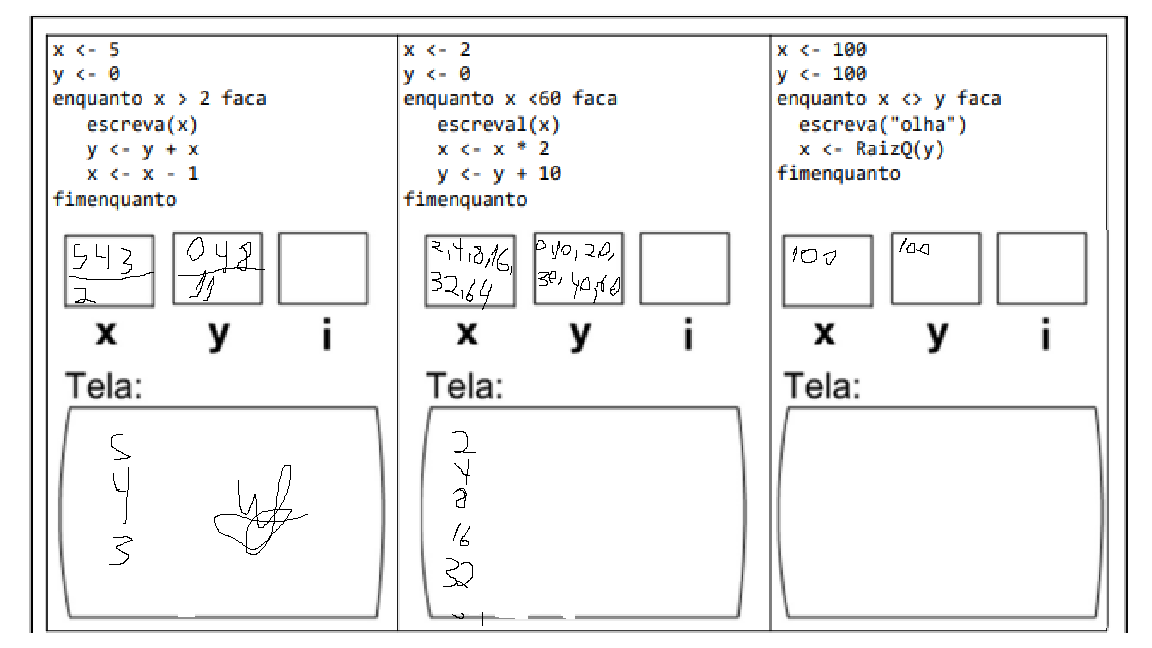 x <- 5
y <- 0
enquanto x > 2 faca
escreva(x)
y <- y + x
x <- x - 1
fimenquanto
5 4 3
2
0 4 8
11
x y i
Tela:
5
4
3
x <- 2
y <- 0
enquanto x <60 faca
escreval(x)
x <- x * 2
y <- y + 10
fimenquanto
2,4,8,16,
32,64
0,10,20,
30,40,60
x y i
Tela:
2
4
8
16
32
x <- 100
y <- 100
enquanto x <> y faca
escreva("olha")
x <- RaizQ(y)
fimenquanto
100
100
x y i
Tela: